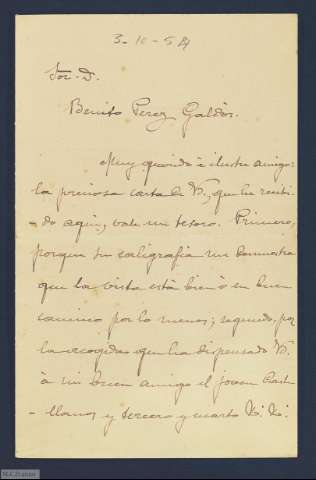 3-10-5
Sor. D.
Benito Perez Galdós.
Muy querido é ilustre amigo:
la preciosa carta de V., que he recibi-
-do aqui, vale un tesoro. Primero,
porque su caligrafia me demuestra
que la vista está bien ó en buen
camino por lo menos; segundo, por
la acogida que ha dispensado V.
á mi buen amigo el joven Caste-
-llanos y tercero y cuarto